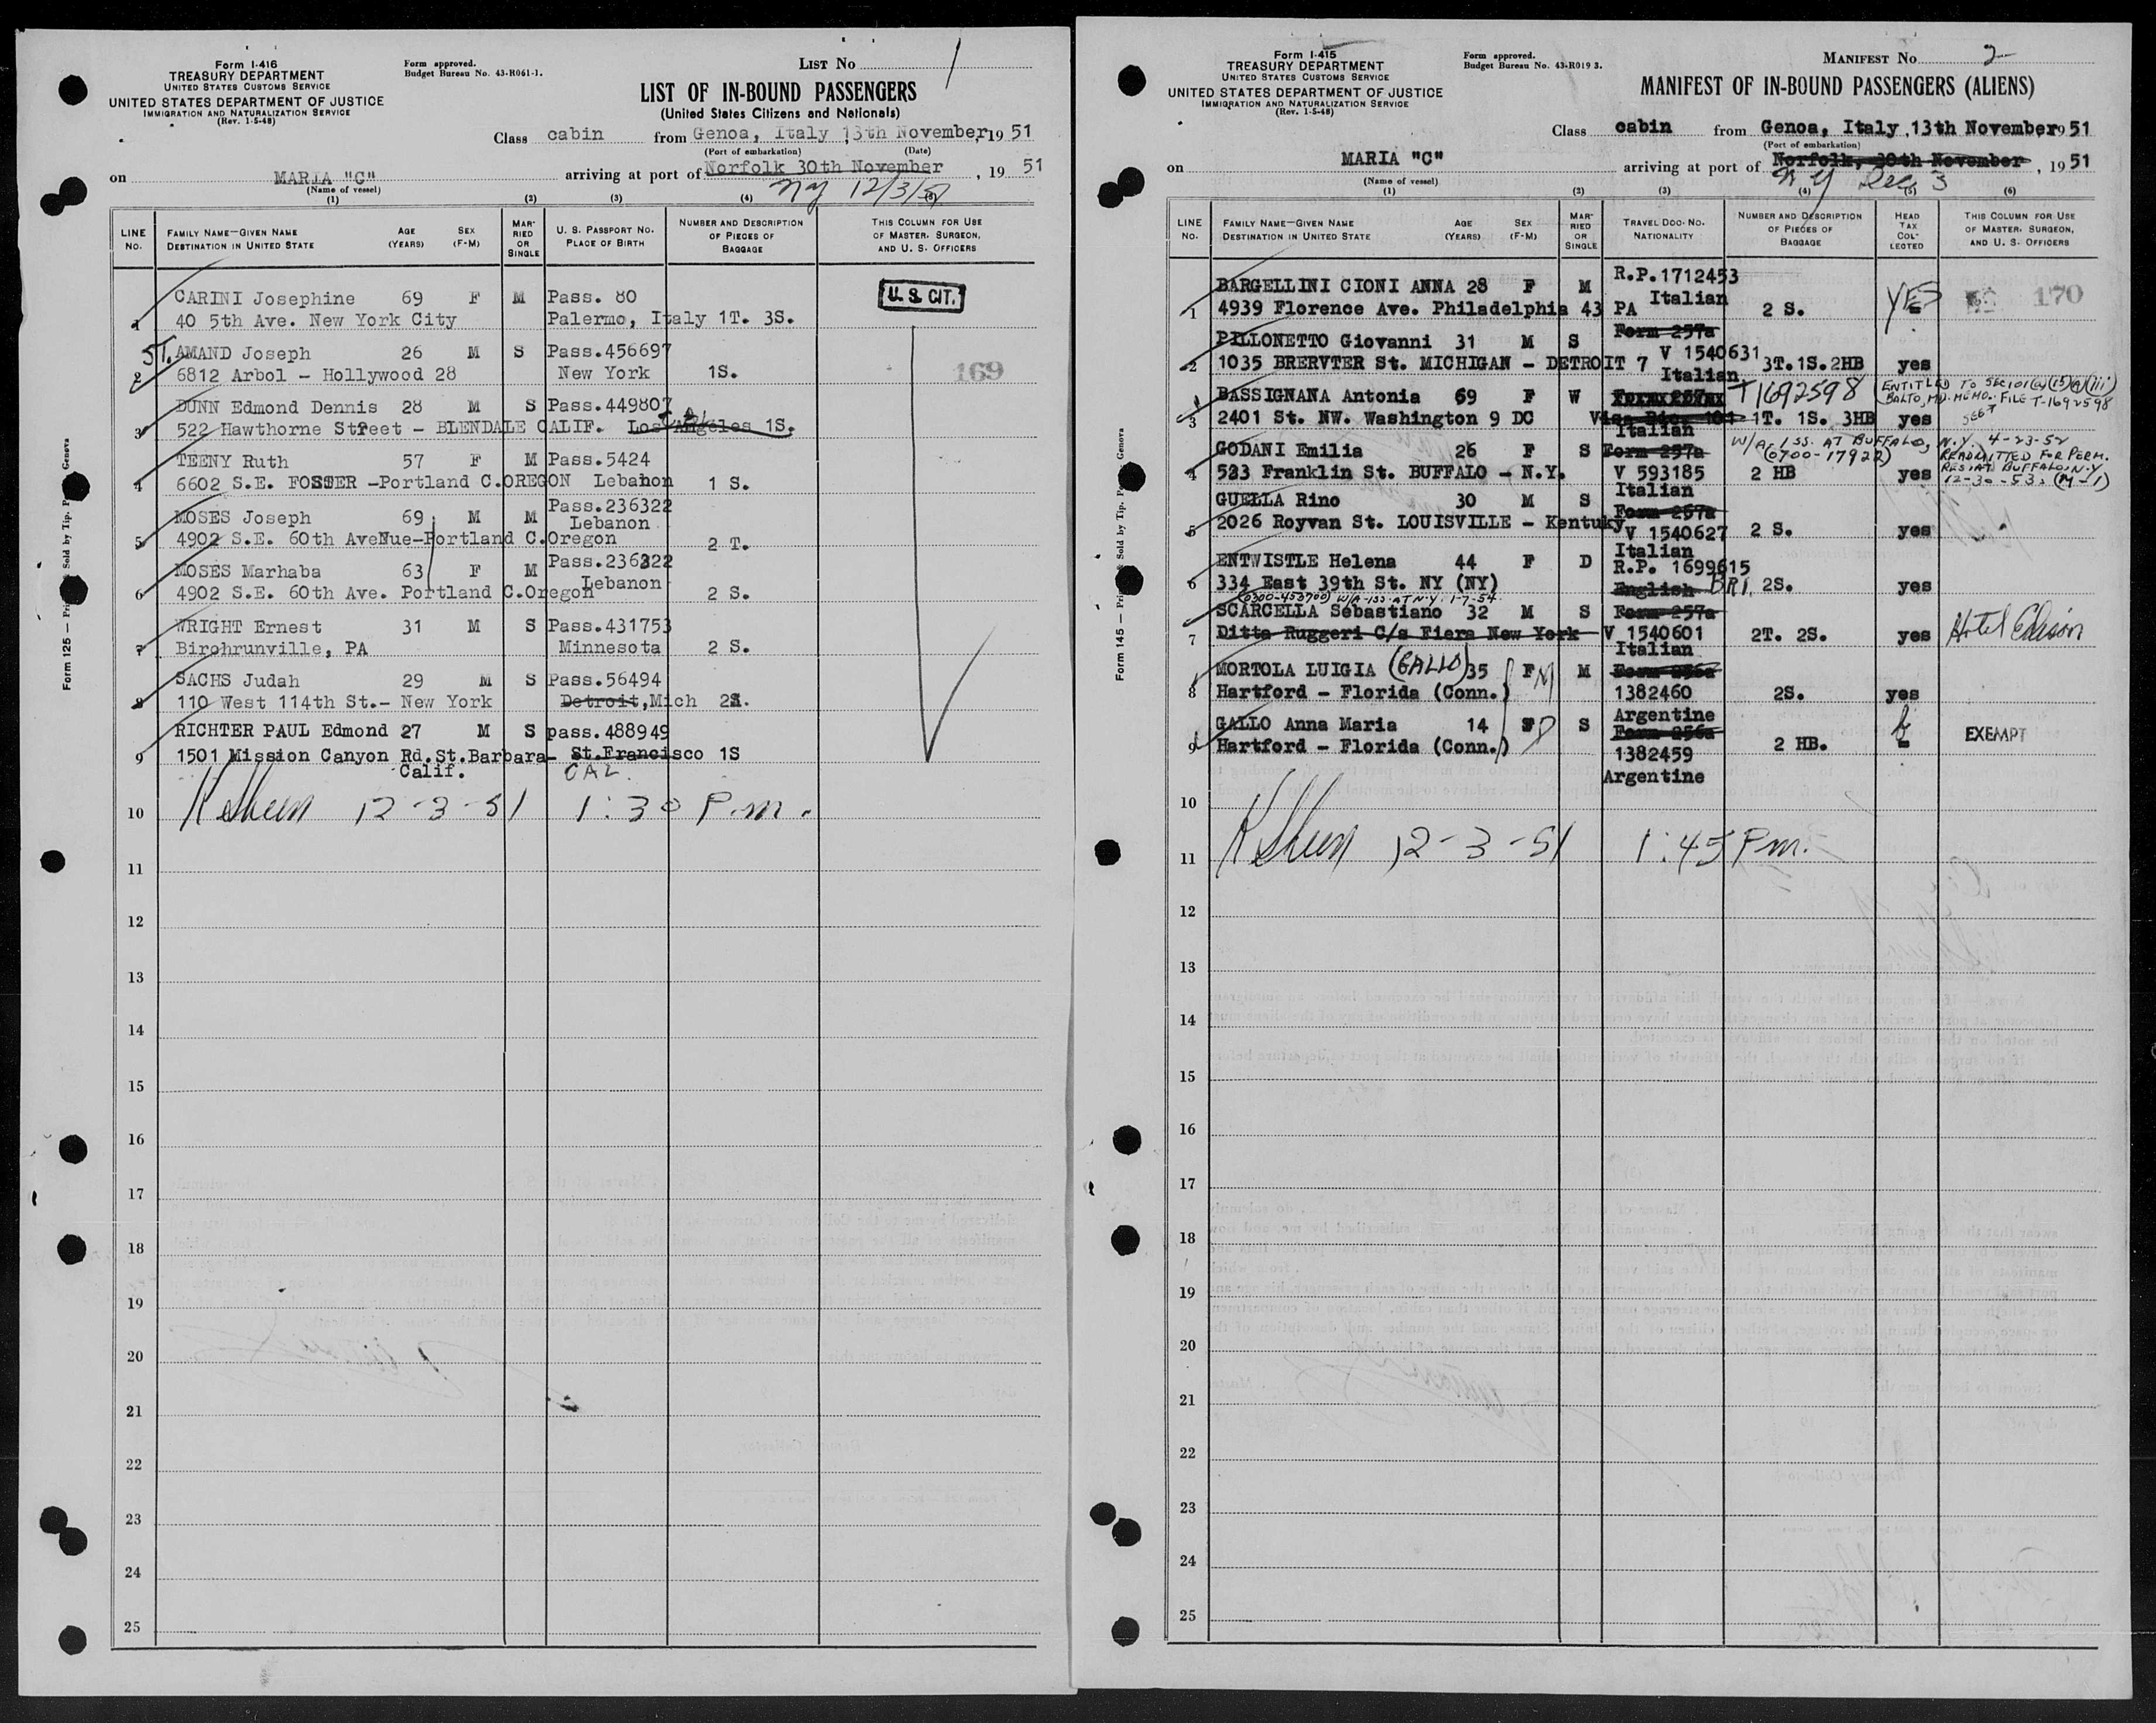 Form I-416
TREASURY DEPARTMENT
UNITED STATES CUSTOMS SERVICE
UNITED STATES DEPARTMENT OF JUSTICE
IMMIGRATION AND NATURALIZATION SERVICE
(Rev. 1-5-48)
Form approved.
Budget Bureau No. 43-R061-1.
LIST No 1
LIST OF IN-BOUND PASSENGERS
(United States Citizens and Nationals)
Class cabin from Genoa, Italy, 13th November, 19 51
(Port of embarkation) (Date)
on MARIA "C" arriving at port of Norfolk 30th November, 19 51
(Name of vessel) NY 12/3/51
(1) (2) (3) (4) (5)
LINE No. FAMILY NAME—GIVEN NAME DESTINATION IN UNITED STATE AGE (YEARS) SEX (F-M) MARRIED OR SINGLE U. S. PASSPORT NO. PLACE OF BIRTH NUMBER AND DESCRIPTION OF PIECES OF BAGGAGE THIS COLUMN FOR USE OF MASTER, SURGEON, AND U. S. OFFICERS
U. S. CIT.
CARINI Josephine 69 F M Pass. 80
1 40 5th Ave. New York City Palermo, Italy 1T. 3S.
ST. AMAND Joseph 26 M S Pass.456697
2 6812 Arbol - Hollywood 28 New York 1S. 169
DUNN Edmond Dennis 28 M S Pass.449807
3 522 Hawthorne Street - BLENDALE CALIF. Los Angeles 1S.
TEENY Ruth 57 F M Pass.5424
4 6602 S.E. FOSTER -Portland C.OREGON Lebanon 1 S.
MOSES Joseph 69 M M Pass.236322
Lebanon
5 4902 S.E. 60th AveNue-Portland C.Oregon 2 T.
MOSES Marhaba 63 F M Pass.236322
Lebanon
6 4902 S.E. 60th Ave. Portland C.Oregon 2 S.
WRIGHT Ernest 31 M S Pass.431753
7 Birchrunville, PA Minnesota 2 S.
SACHS Judah 29 M S Pass.56494
8 110 West 114th St.- New York Detroit,Mich 2S.
RICHTER PAUL Edmond 27 M S pass.488949
9 1501 Mission Canyon Rd.St.Barbara- St.Francisco 1S
Calif. CAL.
10 K Sheen 12-3-51 1:30 P.m.
11
12
13
14
15
16
17
18
19
20
21
22
23
24
25
Form 125
Sold by Tip. Genova
Form I-415
TREASURY DEPARTMENT
UNITED STATES CUSTOMS SERVICE
UNITED STATES DEPARTMENT OF JUSTICE
IMMIGRATION AND NATURALIZATION SERVICE
(Rev. 1-5-48)
Form approved.
Budget Bureau No. 43-R019 3.
MANIFEST No 2
MANIFEST OF IN-BOUND PASSENGERS (ALIENS)
Class cabin from Genoa, Italy, 13th November 1951
(Port of embarkation)
on MARIA "C" arriving at port of Norfolk, 30th November, 19 51
(Name of vessel) NY Dec 3
(1) (2) (3) (4) (5) (6)
LINE No. FAMILY NAME—GIVEN NAME DESTINATION IN UNITED STATE AGE (YEARS) SEX (F-M) MARRIED OR SINGLE TRAVEL DOC. NO. NATIONALITY NUMBER AND DESCRIPTION OF PIECES OF BAGGAGE HEAD TAX COLLECTED THIS COLUMN FOR USE OF MASTER, SURGEON, AND U. S. OFFICERS
R.P.1712453
BARGELLINI CIONI ANNA 28 F M Italian YES 170
1 4939 Florence Ave. Philadelphia 43 PA 2 S.
Form 257a
PILLONETTO Giovanni 31 M S V 1540631
2 1035 BRERVTER St. MICHIGAN - DETROIT 7 3T.1S.2HB yes
Italian
BASSIGNANA Antonia 69 F W T1692598 ENTITLED TO SEC 101(a)(15)(a)(iii)
BALTO, MD. MEMO. FILE T-1692598
3 2401 St. NW. Washington 9 DC 1T. 1S. 3HB yes
Italian
GODANI Emilia 26 F S Form 257a W/A ISS. AT BUFFALO, N.Y. 4-23-52
(0700-17922) READMITTED FOR PERM.
4 523 Franklin St. BUFFALO - N.Y. V 593185 2 HB yes RES. AT BUFFALO, N.Y
12-30-53. (M-1)
Italian
GUELLA Rino 30 M S Form 257a
5 2026 Royvan St. LOUISVILLE - Kentuky V 1540627 2 S. yes
Italian
ENTWISTLE Helena 44 F D R.P. 1699615
6 334 East 39th St. NY (NY) English BRI. 2S. yes
(0300-453700) W/A-ISS. AT N.Y. 1-7-54
SCARCELLA Sebastiano 32 M S Form 257a
7 Ditta Ruggeri C/a Fiera New York V 1540601 2T. 2S. yes Hotel Edison
Italian
MORTOLA LUIGIA (GALLO) 35 F M Form 256a
8 Hartford - Florida (Conn.) 1382460 2S. yes
Argentine
GALLO Anna Maria 14 S Form 256a
9 Hartford - Florida (Conn.) 1382459 2 HB. EXEMPT
Argentine
10
11 K Sheen 12-3-51 1:45 P.m.
12
13
14
15
16
17
18
19
20
21
22
23
24
25
Form 145
Sold by Tip. Genova